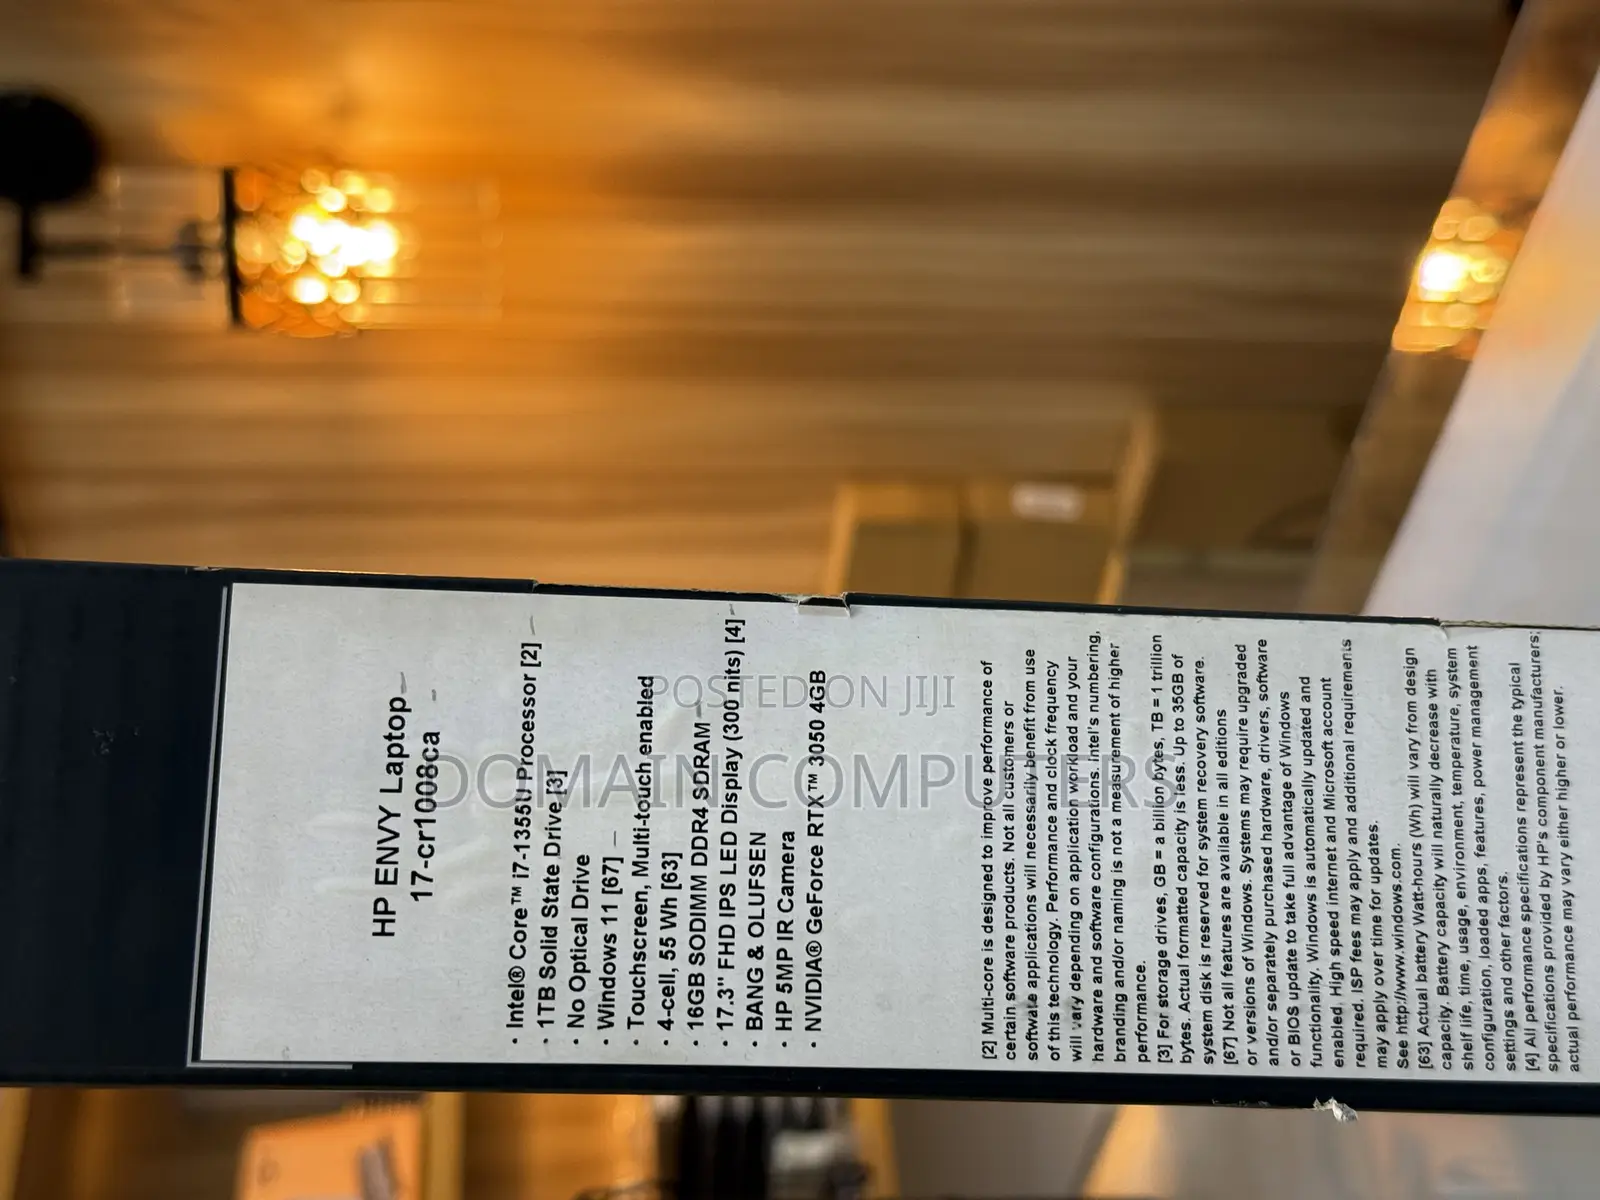 HP ENVY Laptop
17-cr1008ca
• Intel® Core™ i7-1355U Processor [2]
• 1TB Solid State Drive [3]
• No Optical Drive
• Windows 11 [67]
• Touchscreen, Multi-touch enabled
• 4-cell, 55 Wh [63]
• 16GB SODIMM DDR4 SDRAM
• 17.3" FHD IPS LED Display (300 nits) [4]
• BANG & OLUFSEN
• HP 5MP IR Camera
• NVIDIA® GeForce RTX™ 3050 4GB
[2] Multi-core is designed to improve performance of
certain software products. Not all customers or
software applications will necessarily benefit from use
of this technology. Performance and clock frequency
will vary depending on application workload and your
hardware and software configurations. Intel's numbering,
branding and/or naming is not a measurement of higher
performance.
[3] For storage drives, GB = a billion bytes, TB = 1 trillion
bytes. Actual formatted capacity is less. Up to 35GB of
system disk is reserved for system recovery software.
[67] Not all features are available in all editions
or versions of Windows. Systems may require upgraded
and/or separately purchased hardware, drivers, software
or BIOS update to take full advantage of Windows
functionality. Windows is automatically updated and
enabled. High speed internet and Microsoft account
required. ISP fees may apply and additional requirements
may apply over time for updates.
See http://www.windows.com.
[63] Actual battery Watt-hours (Wh) will vary from design
capacity. Battery capacity will naturally decrease with
shelf life, time, usage, environment, temperature, system
configuration, loaded apps, features, power management
settings and other factors.
[4] All performance specifications represent the typical
specifications provided by HP's component manufacturers;
actual performance may vary either higher or lower.
POSTED ON JIJI
DOMAIN COMPUTERS